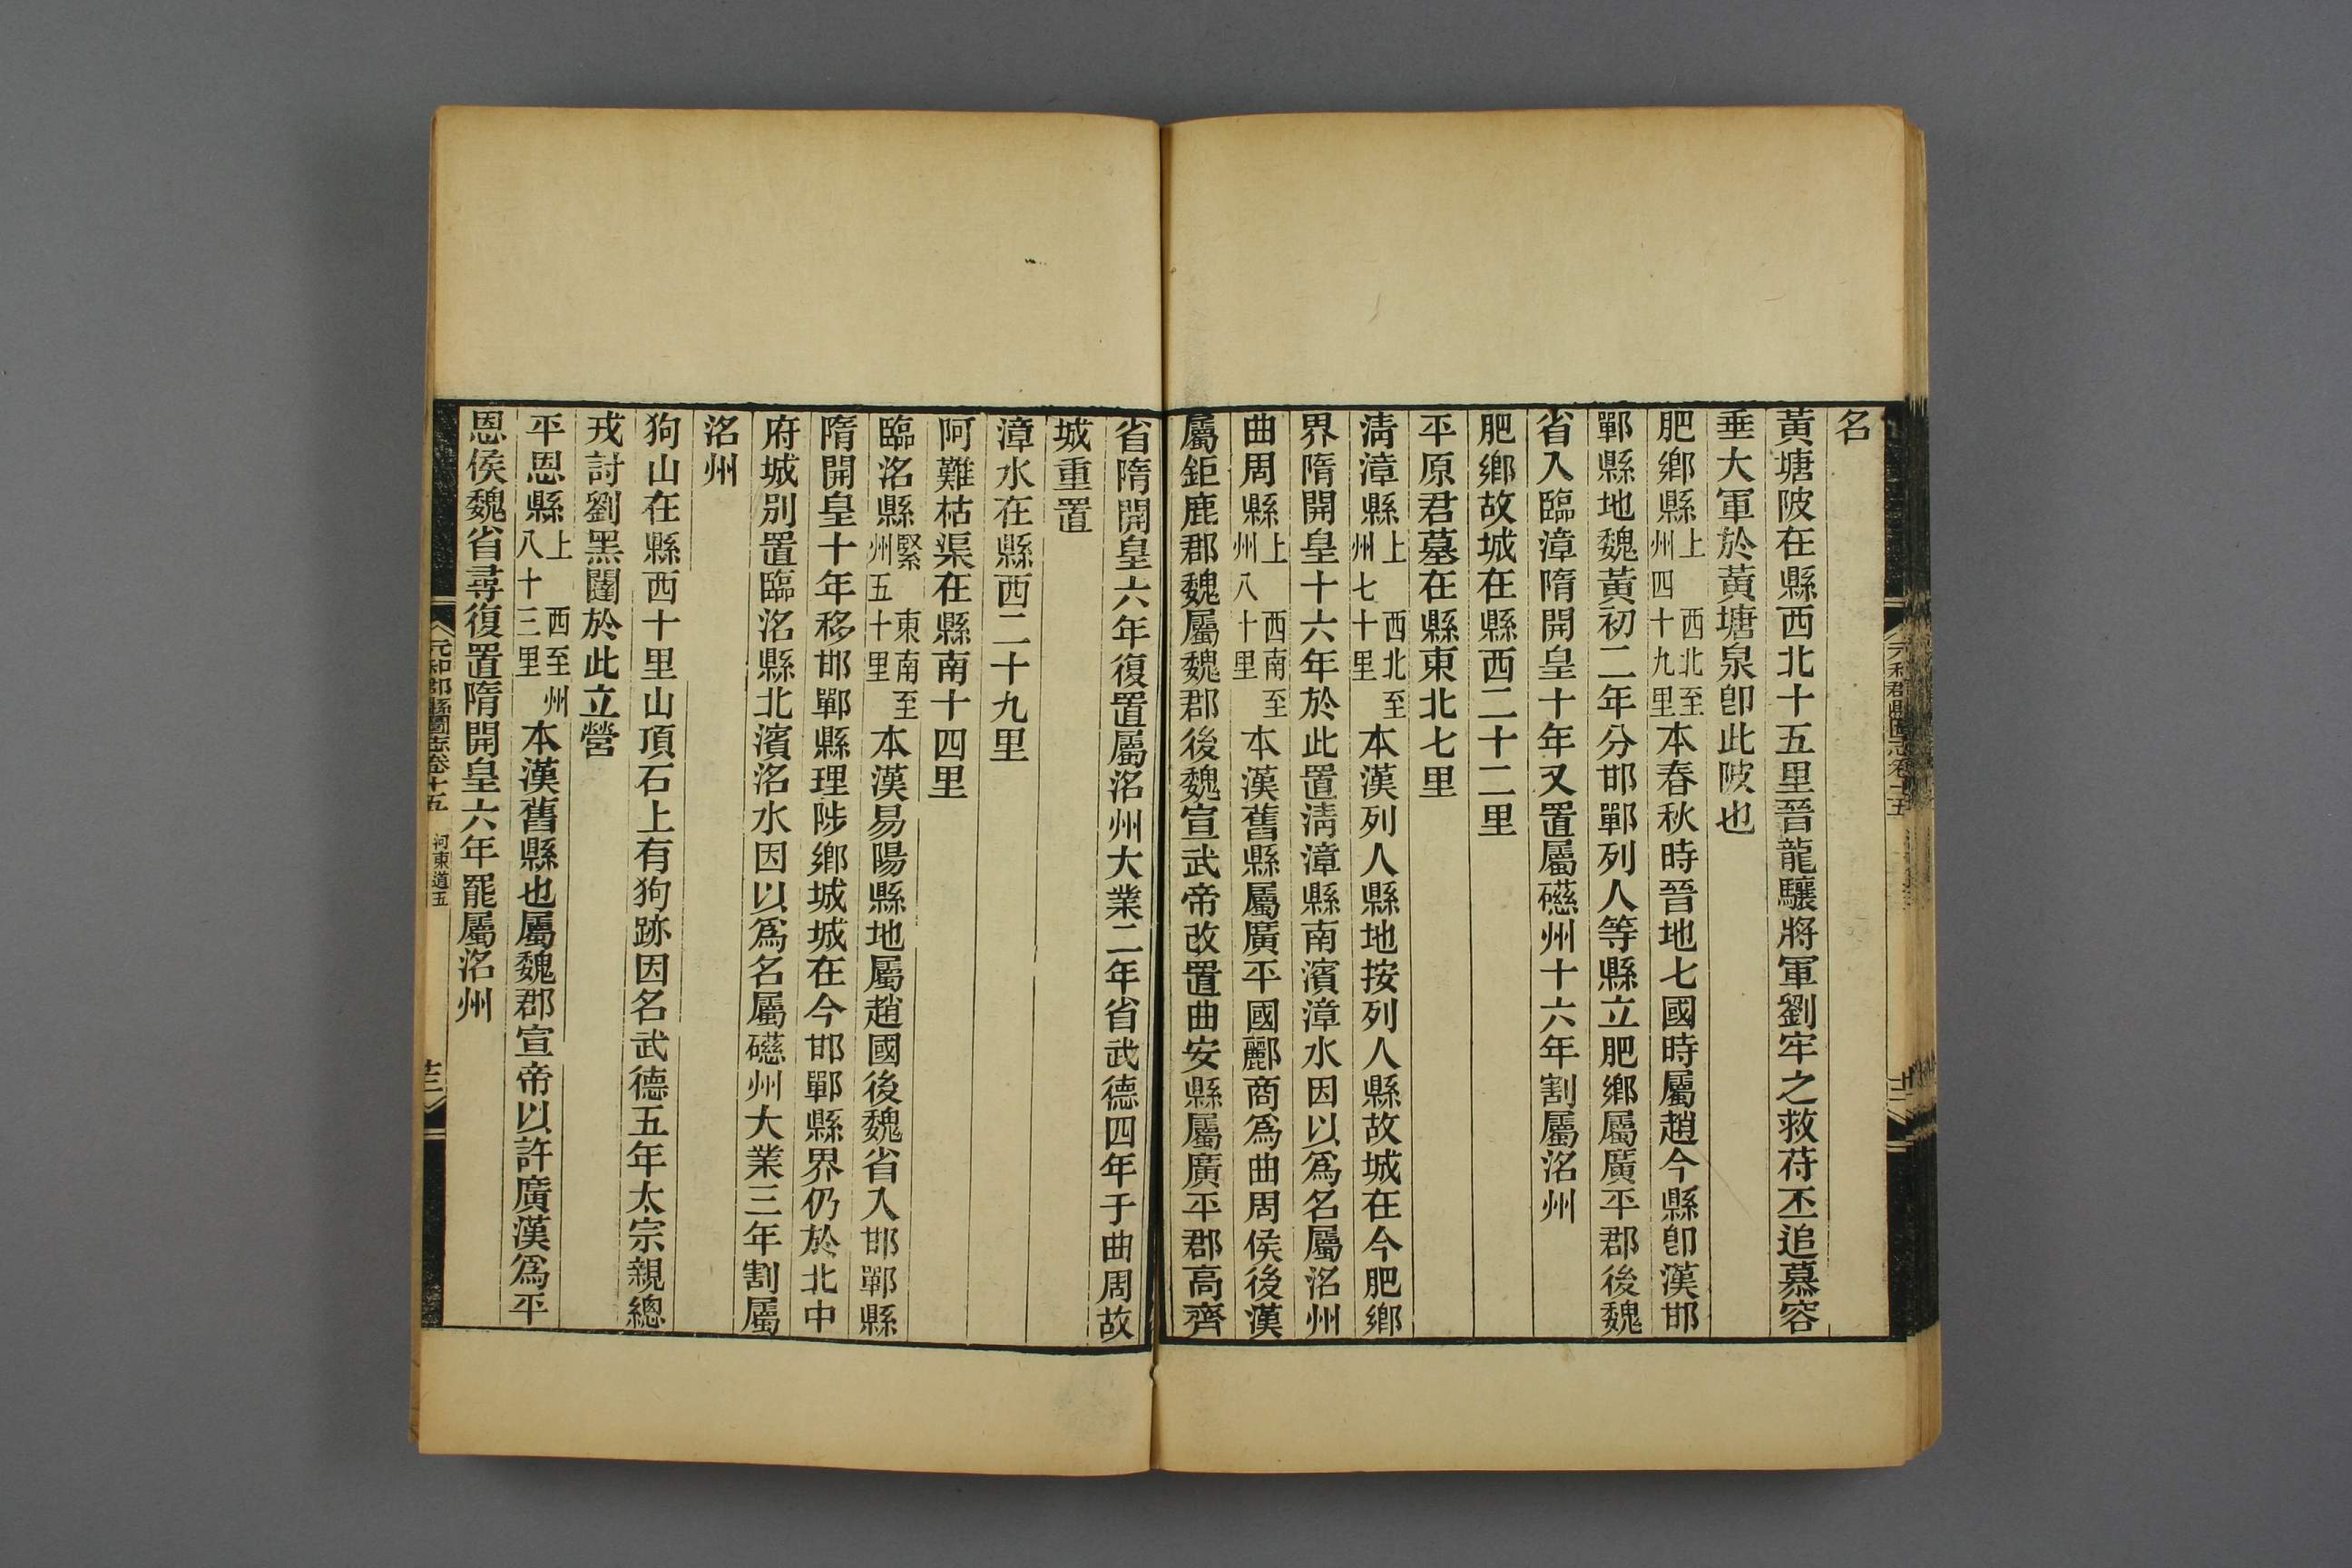 名
黃塘陂在縣西北十五里晉龍驤將軍劉牢之救苻丕追慕容
垂大軍於黃塘泉卽此陂也
肥鄉縣上西北至州四十九里本春秋時晉地七國時屬趙今縣卽漢邯
鄲縣地魏黃初二年分邯鄲列人等縣立肥鄉屬廣平郡後魏
省入臨漳隋開皇十年又置屬礠州十六年割屬洺州
肥鄉故城在縣西二十二里
平原君墓在縣東北七里
淸漳縣上西北至州七十里本漢列人縣地按列人縣故城在今肥鄉
界隋開皇十六年於此置淸漳縣南濱漳水因以爲名屬洺州
曲周縣上西南至州八十里本漢舊縣屬廣平國酈商爲曲周侯後漢
屬鉅鹿郡魏屬魏郡後魏宣武帝改置曲安縣屬廣平郡高齊
省隋開皇六年復置屬洺州大業二年省武德四年于曲周故
城重置
漳水在縣西二十九里
阿難枯渠在縣南十四里
臨洺縣緊東南至州五十里本漢易陽縣地屬趙國後魏省入邯鄲縣
隋開皇十年移邯鄲縣理陟鄉城城在今邯鄲縣界仍於北中
府城別置臨洺縣北濱洺水因以爲名屬礠州大業三年割屬
洺州
狗山在縣西十里山頂石上有狗跡因名武德五年太宗親總
戎討劉黑闥於此立營
平恩縣上西至州八十三里本漢舊縣也屬魏郡宣帝以許廣漢爲平
恩侯魏省尋復置隋開皇六年罷屬洺州
元和郡縣圖志卷十五
河東道五